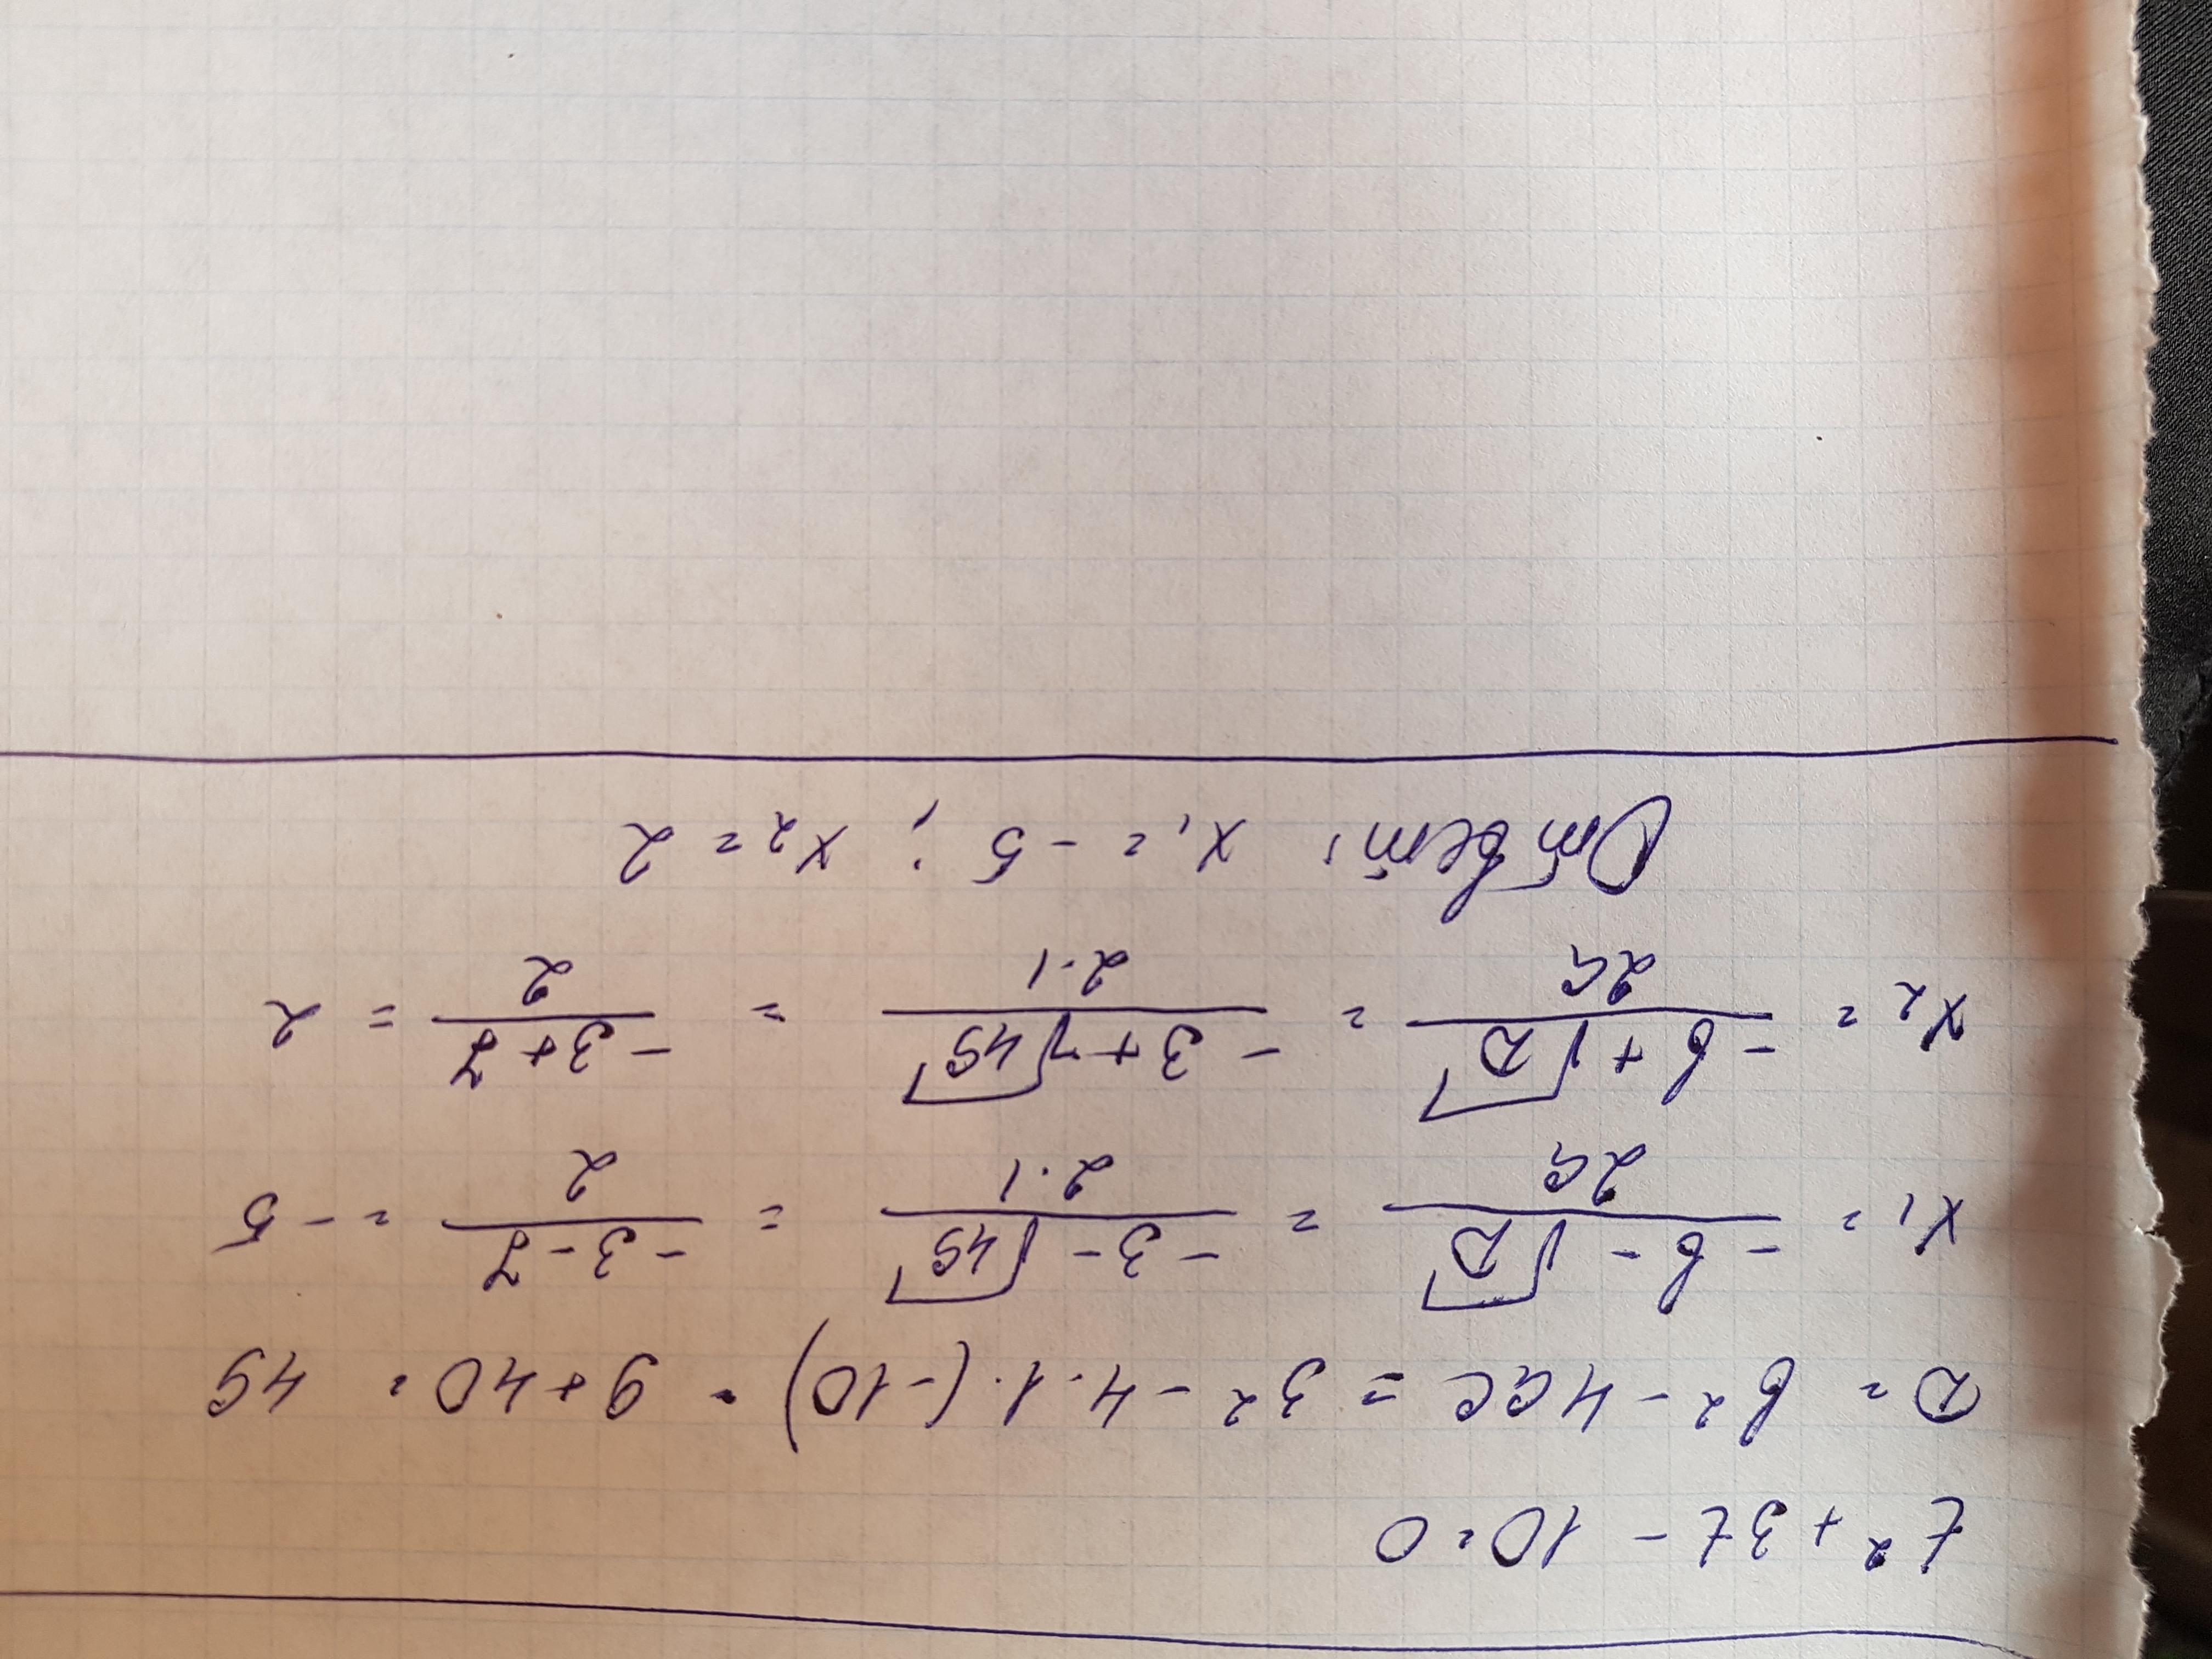 t² + 3t - 10 = 0
D = b² - 4ac = 3² - 4·1·(-10) = 9+40 = 49
x₁ = (-b - √D)/2a = (-3 - √49)/2·1 = (-3-7)/2 = -5
x₂ = (-b + √D)/2a = (-3 + √49)/2·1 = (-3+7)/2 = 2
Ответ: x₁ = -5 ; x₂ = 2